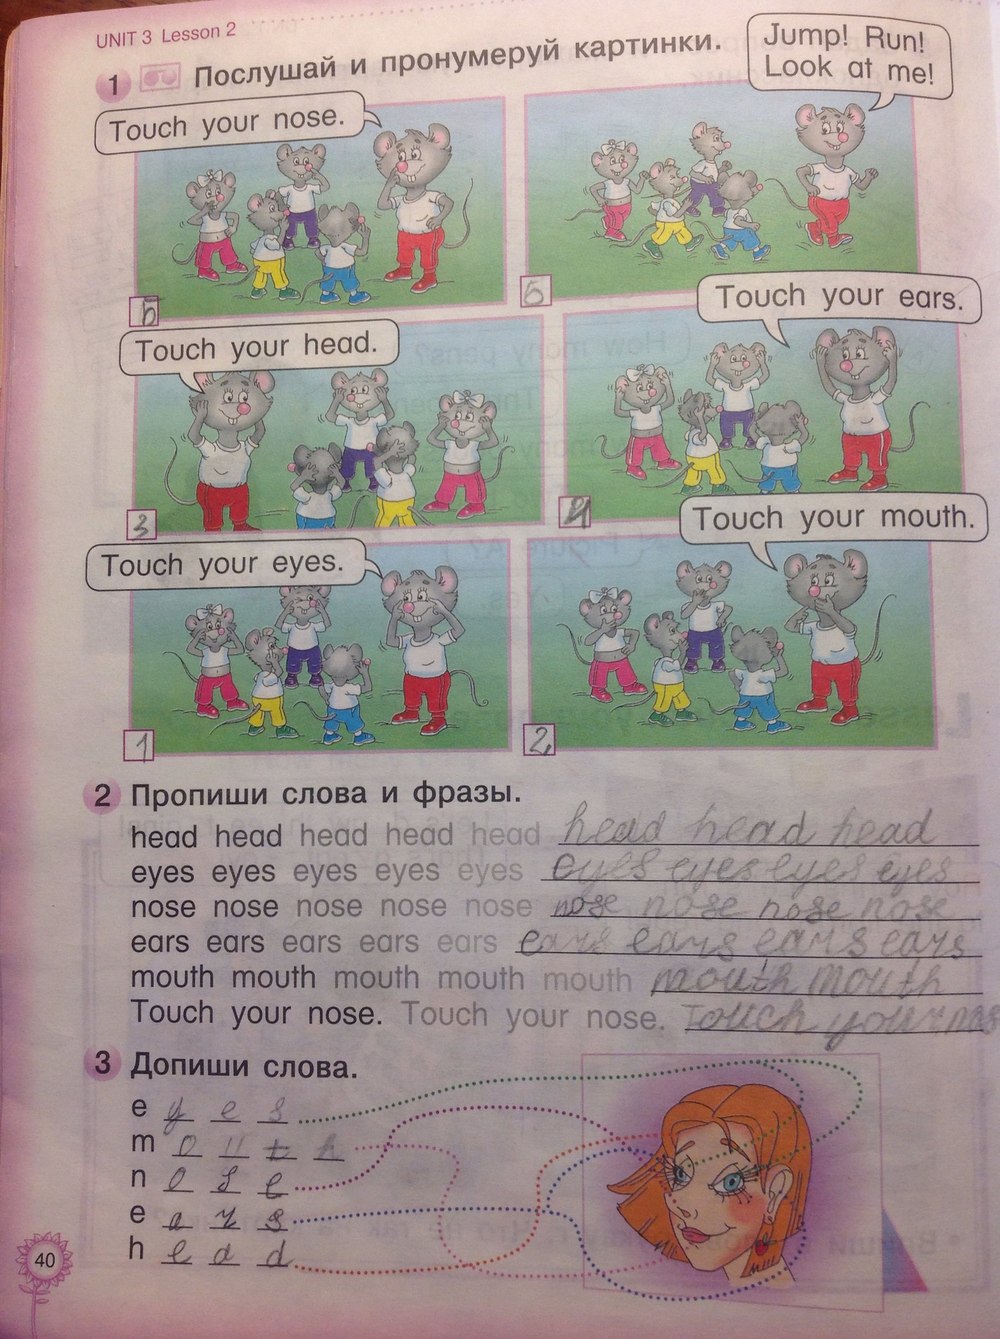 UNIT 3 Lesson 2
1 Послушай и пронумеруй картинки.
Jump! Run!
Look at me!
Touch your nose.
5
Touch your ears.
Touch your head.
3
4
Touch your mouth.
Touch your eyes.
1
2
2 Пропиши слова и фразы.
head head head head head head head head
eyes eyes eyes eyes eyes eyes eyes eyes eyes
nose nose nose nose nose nose nose nose nose
ears ears ears ears ears ears ears ears ears
mouth mouth mouth mouth mouth mouth mouth
Touch your nose. Touch your nose. Touch your nos
3 Допиши слова.
e y e s
m o u t h
n o s e
e a r s
h e a d
40